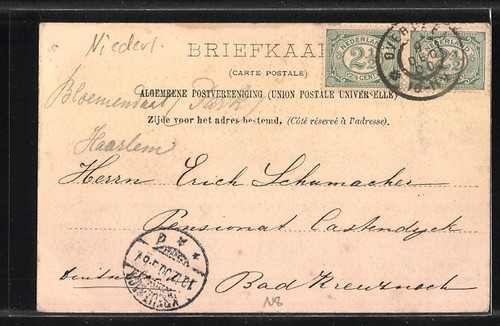 Niederl.
BRIEFKAA
(CARTE POSTALE)
ALGEMEENE POSTVEREENIGING (UNION POSTALE UNIVERSELLE)
Zijde voor het adres bestemd, (Côté réservé à l'adresse).
NEDERLAND
2½
2½ CENT
NEDERLAND
Bloemendaal / Park /
Haarlem
Herrn Erich Schumacher
Pensionat Castendyck
Bad Kreuznach
N8